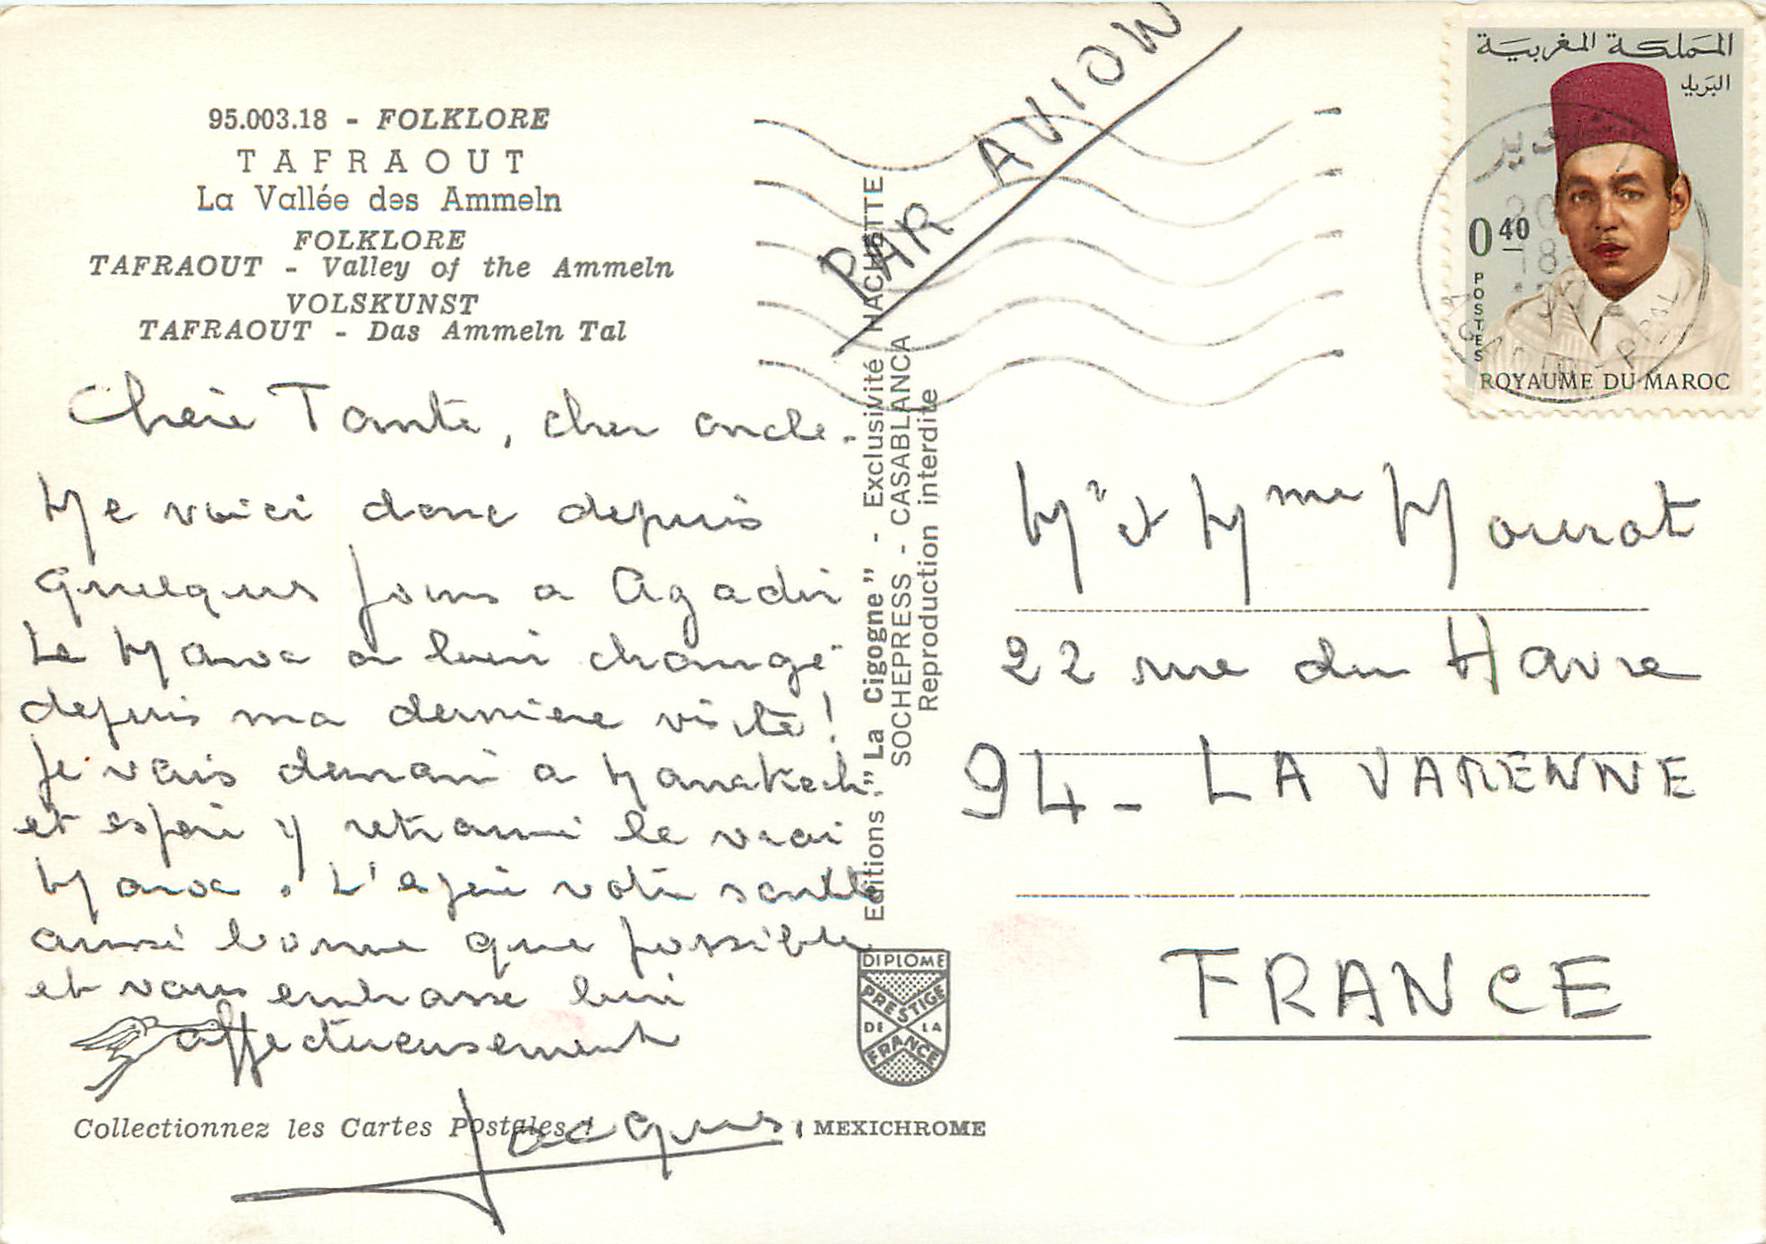 95.003.18 - FOLKLORE
TAFRAOUT
La Vallée des Ammeln
FOLKLORE
TAFRAOUT - Valley of the Ammeln
VOLSKUNST
TAFRAOUT - Das Ammeln Tal
Chère Tante, cher oncle.
Me voici donc depuis
quelques jours a Agadir
Le Maroc a bien changé
depuis ma dernière visite!
Je vais demain a Marrakech
et espère y retrouver le vrai
Maroc. J'espère votre santé
aussi bonne que possible
et vous embrasse bien
affectueusement
Jacques
Collectionnez les Cartes Postales !
MEXICHROME
Editions "La Cigogne" - Exclusivité HACHETTE
SOCHEPRESS - CASABLANCA
Reproduction interdite
DIPLOME
PRESTIGE
DE LA
FRANCE
PAR AVION
المملكة المغربية
البريد
0,40
POSTES
ROYAUME DU MAROC
Mr et Mme Mourot
22 rue du Havre
94 - LA VARENNE
FRANCE